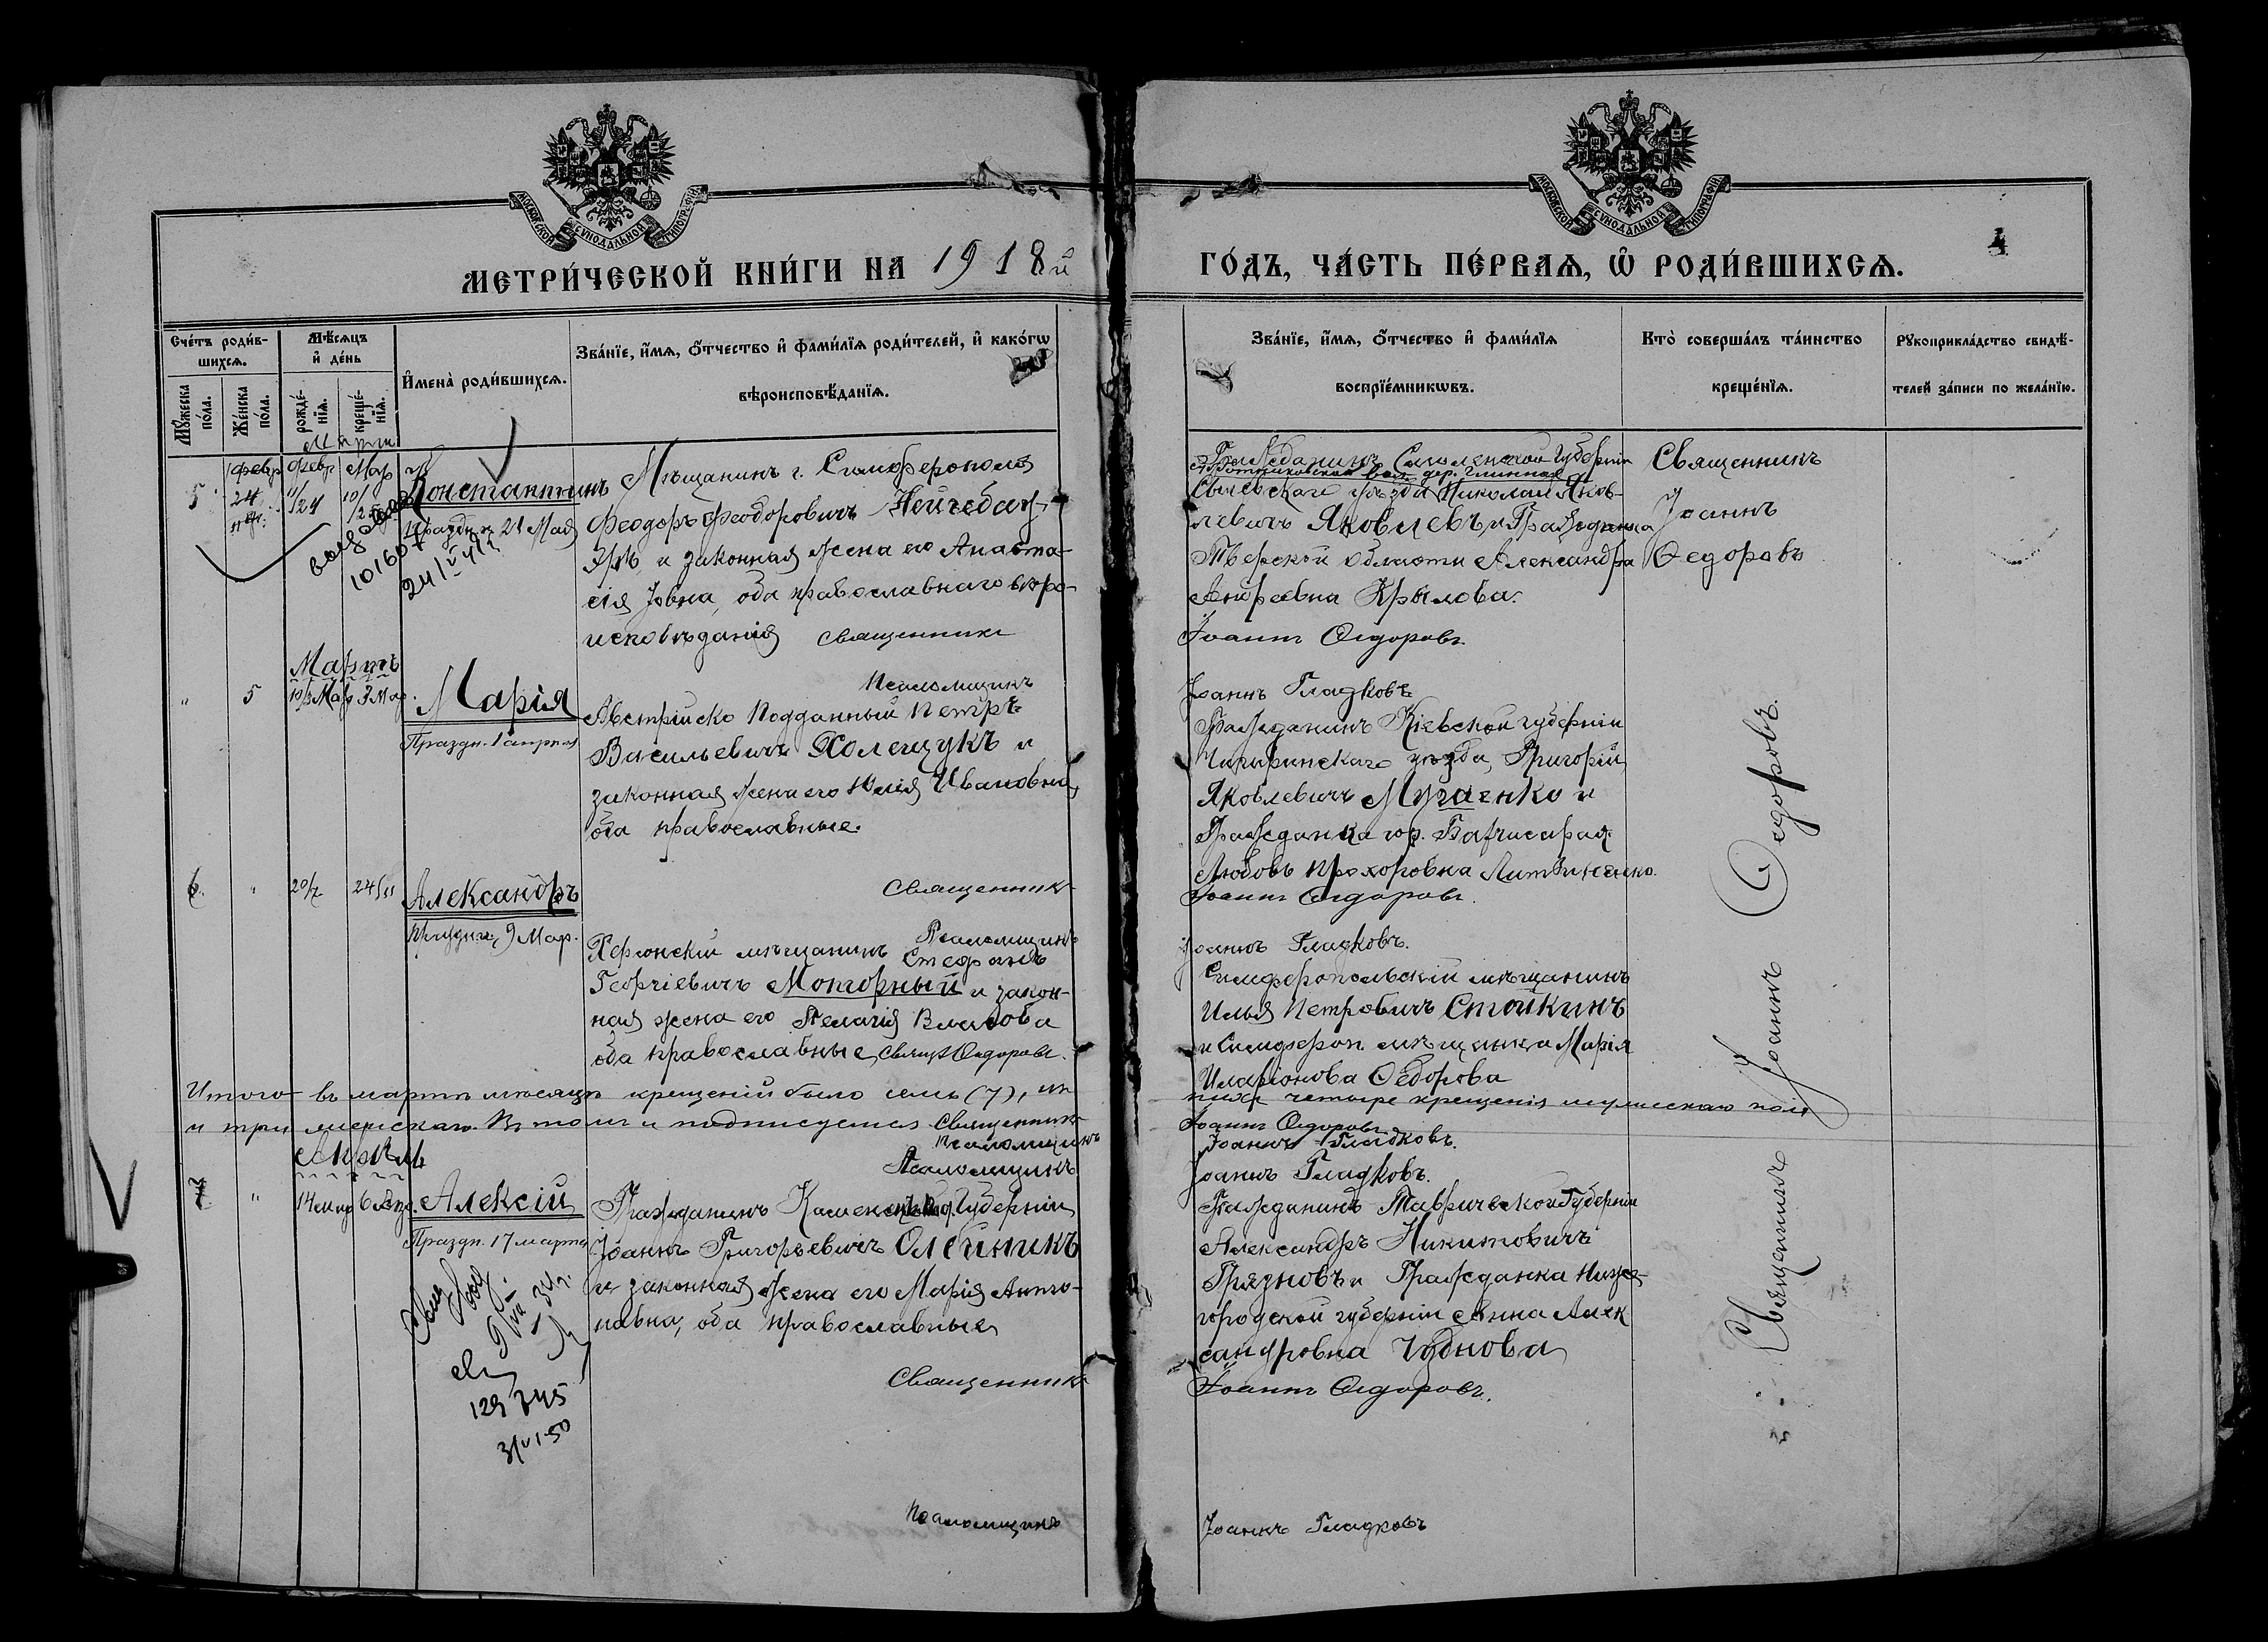 МОСКОВСКОЙ СѴНОДАЛЬНОЙ ТИПОГРАФІИ
МОСКОВСКОЙ СѴНОДАЛЬНОЙ ТИПОГРАФІИ
МЕТРИ́ЧЕСКОЙ КНИ́ГИ НА 1918й
ГО́ДЪ, ЧА́СТЬ ПЕ́РВАѦ, Ѡ҆ РОДИ́ВШИХСѦ.
4
Сче́тъ роди́в-
шихсѧ.
Мꙋ́жеска по́ла.
Же́нска по́ла.
Мѣ́сѧцъ
и҆ де́нь
рожде́-
нїѧ.
креще́-
нїѧ.
И҆мена̀ роди́вшихсѧ.
Зва́нїе, и҆́мѧ, ѻ҆́тчество и҆ фами́лїѧ роди́телей, и҆ како́гѡ
вѣроисповѣ́данїѧ.
Зва́нїе, и҆́мѧ, ѻ҆́тчество и҆ фами́лїѧ
воспрїе́мникѡвъ.
Кто̀ соверша́лъ та́инство
креще́нїѧ.
Рꙋкоприкла́дство свидѣ́-
телей за́писи по жела́нїю.
Мартъ
5
24
Февр
11/24
Мар
Константинъ
Праздн. 21 Мая
101607
Мѣщанинъ г. Симферополя
Феодоръ Феодоровичъ
и законная жена его Анаста-
сія Іовна, оба православнаго вѣро-
исповѣданія Священникъ
Гражданинъ Смоленской Губерніи
дер. Глинная
Сычевскаго уѣзда Николай Яков-
левичъ Яковлевъ и Гражданка
Терской области Александра
Андреевна Крылова.
Іоаннъ Ѳедоровъ.
Священникъ
Іоаннъ
Ѳедоровъ
Мартъ
" 5
Марія
Праздн. 1 апрѣля
Псаломщикъ
Австрійско подданный Петръ
Васильевичъ Холещукъ и
законная жена его Юлія Ивановна,
оба православные.
Священникъ
Іоаннъ Гладковъ
Гражданинъ Кіевской губерніи
Чигиринскаго уѣзда, Григорій
Яковлевичъ
и
Гражданка гор. Бахчисарая
Любовь Прохоровна Литвиненко.
Іоаннъ Ѳедоровъ.
6. "
Александръ
Праздн. 9 Мар.
Псаломщикъ
Херсонскій мѣщанинъ Стефанъ
Георгіевичъ Моторный и закон-
ная жена его Пелагія Власова
оба православные, Свящ. Ѳедоровъ.
Іоаннъ Гладковъ.
Симферопольскій мѣщанинъ
Илья Петровичъ Стойкинъ
и Симфероп. мѣщанка Марія
Иларіонова Ѳедорова
Итого въ мартѣ мѣсяцѣ крещеній было семь (7), из
нихъ четыре крещенія мужескаго пола
и три женскаго. Въ томъ и подписуемся Священникъ
Іоаннъ Ѳедоровъ.
Псаломщикъ
Іоаннъ Гладковъ.
Апрѣль
Псаломщикъ
Іоаннъ Гладковъ.
7 "
Алексій
Праздн. 17 марта
Гражданинъ
Губерніи
Іоаннъ Григорьевичъ Олейникъ
и законная жена его Марія Анто-
новна, оба православные
Священникъ
Гражданинъ Таврической Губерніи
Александръ Никитовичъ
Грязновъ и Гражданка Ниже-
городской губерніи Анна Алек
сандровна Чуднова
Іоаннъ Ѳедоровъ.
129745
Псаломщикъ
Іоаннъ Гладковъ
Священникъ Іоаннъ Ѳедоровъ.